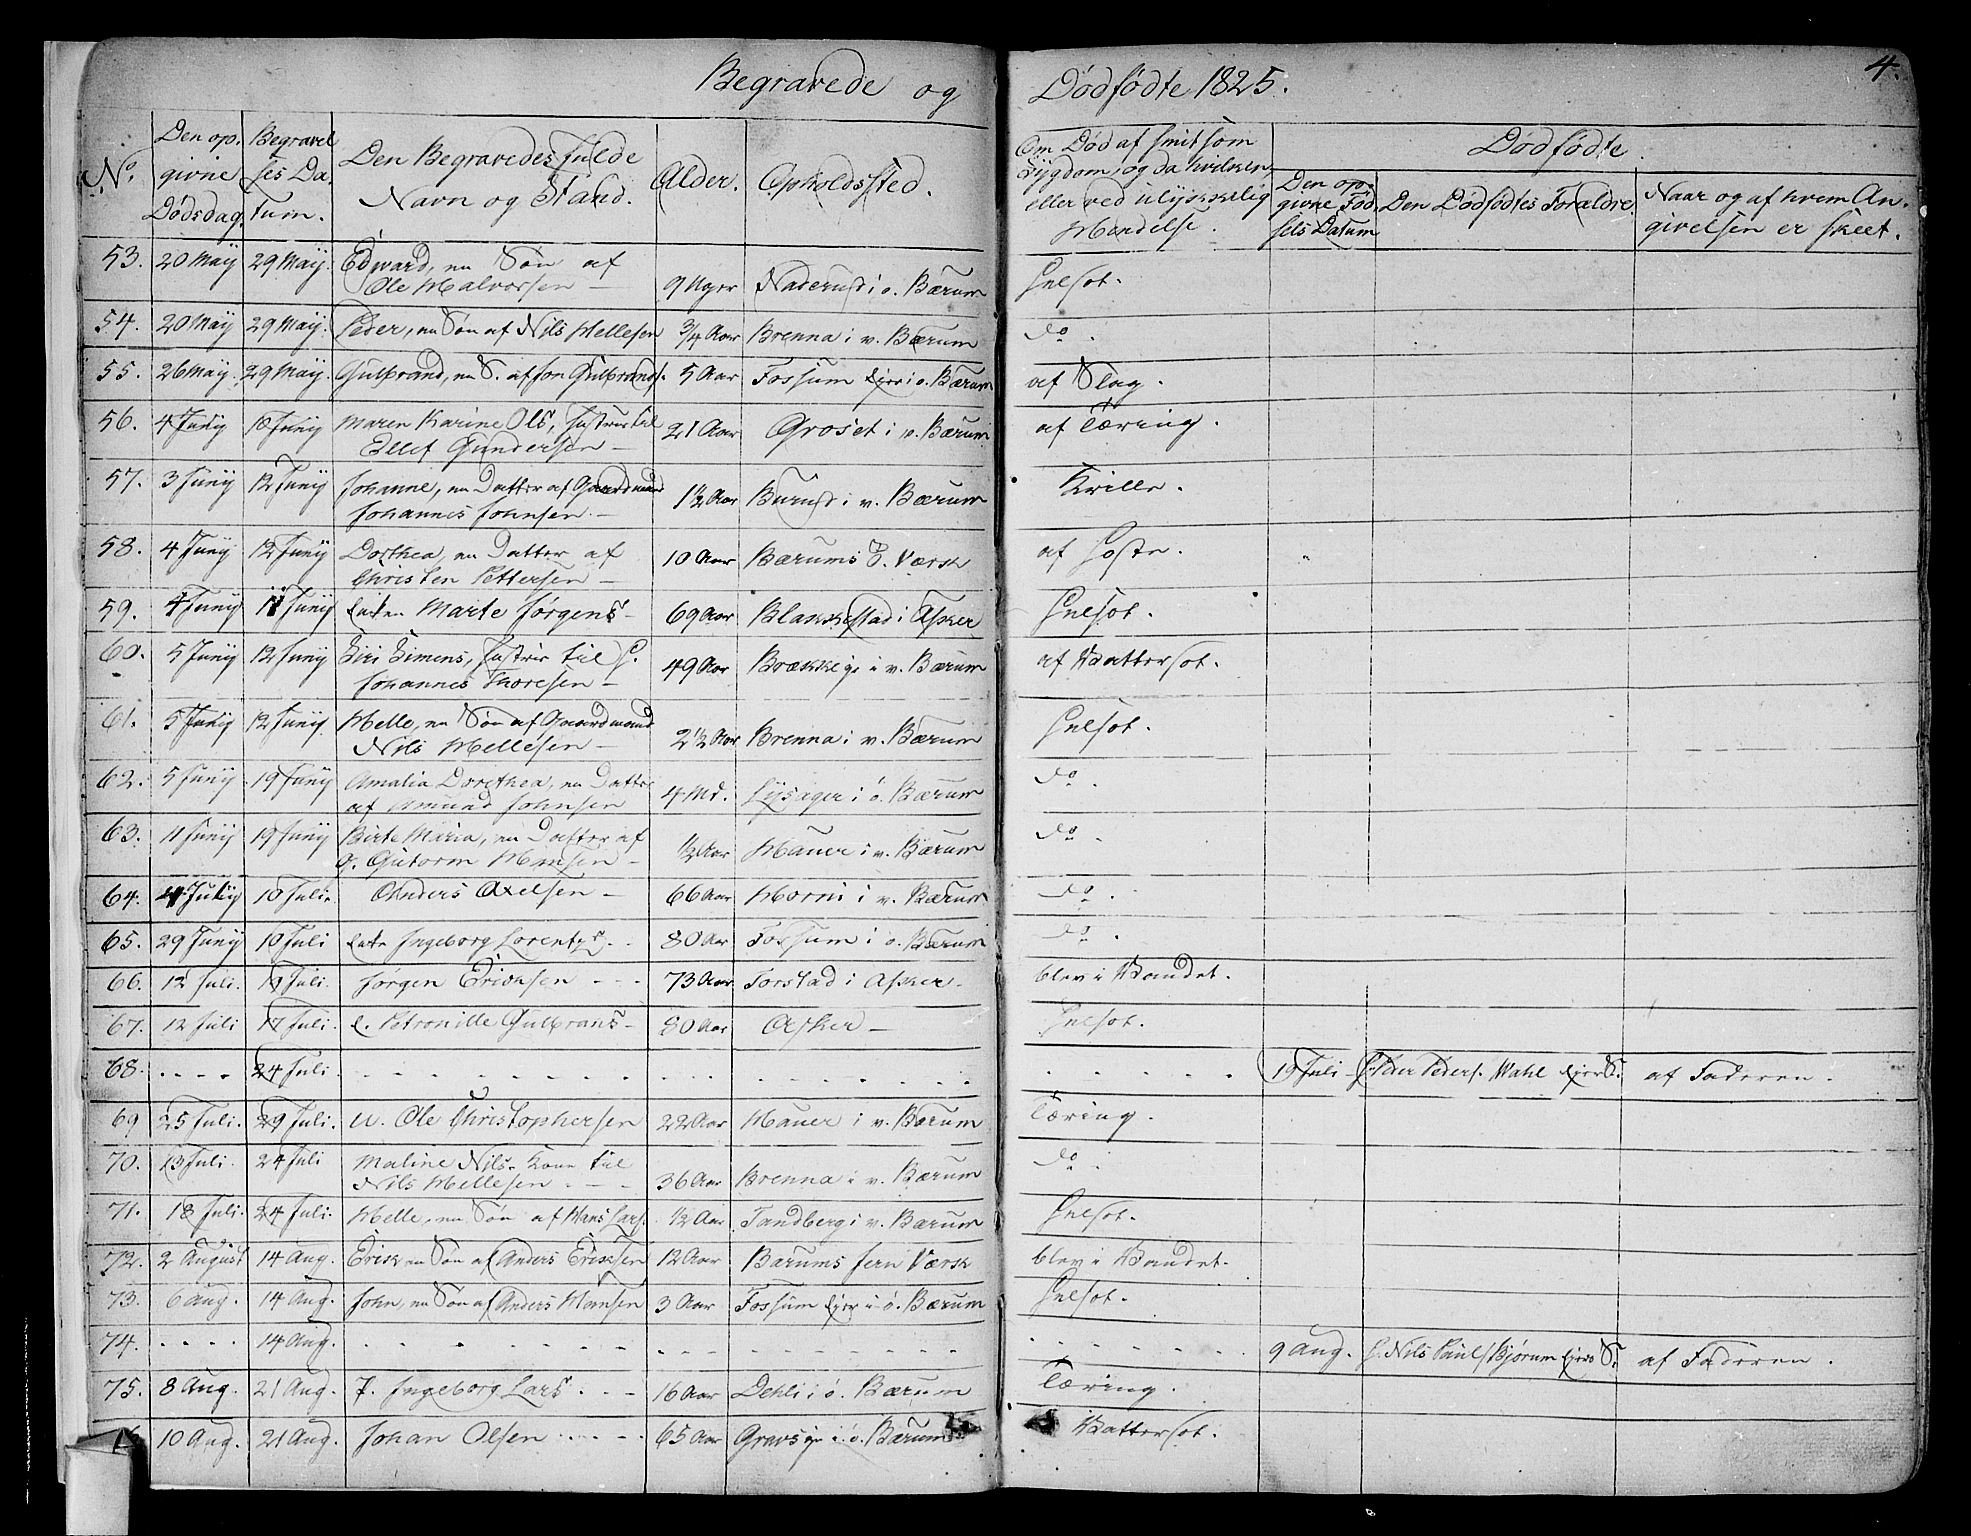 Begravede og Dødfødte 1825.
4.
No. Den op, givne Dødsdag. Begravel ses Da, tum. Den Begravedes fulde Navn og Stand. Alder. Opholdssted. Om Død af smitsom Sygdom, og da hvilken, eller ved ulykkelig Hændelse. Dødfødte.
Den op, givne Fød, sels Datum Den Dødfødtes Forældre. Naar og af hvem An, givelsen er skeet.
53. 20 May 29 May. Edward, en Søn af
Ole Halvorsen — 9 Uger Naderud i ø. Bærum Gulsot.
54. 20 May 29 May. Peder, en Søn af Nils Hellesen 3/4 Aar Brenna i v. Bærum do.
55. 26 May. 29 May. Gulbrand, en S. af Jon Gulbrands. 5 Aar Fossum Ejer i ø. Bærum af Slag.
56. 4 Juny Juny Maren Karine Ols, Hustrue til
Ellef Gundersen — 21 Aar Groset i v. Bærum af Tæring.
57. 3 Juny 12 Juny Johanne, en Datter af Gaardmand
Johannes Johnsen. — 1 1/2 Aar Burud i v. Bærum Krille.
58. 4 Juny 12 Juny Dorthea, en Datter af
Christen Pettersen — 10 Aar Bærums Værk af Hoste.
59. 4 Juny Juny Enken Marte Jørgens — 69 Aar Blakkestad i Asker Gulsot.
60. 5 Juny 12 Juny Siri Simens, Hustrue til G.
Johannes Thoresen — 49 Aar Brække i v. Bærum af Vattersot.
61. 5 Juny 12 Juny. Helle, en Søn af Gaardmand
Nils Hellesen — 2 1/2 Aar Brenna i v. Bærum Gulsot.
62. 5 Juny 19 Juny Amalia Dorethea, en Datter
af Amund Johnsen 4 Md. Lysager i ø. Bærum do.
63. 11 Juny 19 Juny Birte Maria, en Datter af
G. Gutorm Hansen — 1/2 Aar Hauer i v. Bærum do.
64. July 10 Juli. Anders Axelsen — 66 Aar Horni i v. Bærum do.
65. 29 Juny 10 Juli Enke Ingeborg Lorentzs. — 80 Aar Fossum i ø. Bærum do.
66. 12 Juli. Juli. Jørgen Ericksen - - - 73 Aar. Torstad i Asker. blev i Vandet.
67. 12 Juli 17 Juli. E. Petronille Gulbrans — 80 Aar Asker — Gulsot.
68. . . . . 24 Juli. 19 Juli Peder Peders. Wahl Ejer S. af Faderen.
69 25 Juli. 29 Juli. U. Ole Christophersen 22 Aar Hauer i v. Bærum Tæring.
70. 13 Juli. 24 Juli Maline Nils. Kone til
Nils Hellesen. - - 36 Aar Brenna i v. Bærum do.
71. 18 Juli. 24 Juli. Helle, en Søn af Hans Lars. 1/2 Aar Tandberg i v. Bærum Gulsot.
72. 2 August 14 Aug. Erik en Søn af Anders Eriksen 12 Aar Bærums Jern Værk blev i Vandet.
73. 6 Aug. 14 Aug. John, en Søn af Anders Hansen 3 Aar Fossum Ejer i ø. Bærum Gulsot.
74. . . . . 14 Aug. 9 Aug. G. Nils Pauls Bjørum Ejers S. af Faderen.
75. 8 Aug. 21 Aug. P. Ingeborg Lars. - - 16 Aar Dehli i ø. Bærum Tæring.
10 Aug. 21 Aug. Johan Olsen 65 Aar Gravs i ø. Bærum Vattersot.